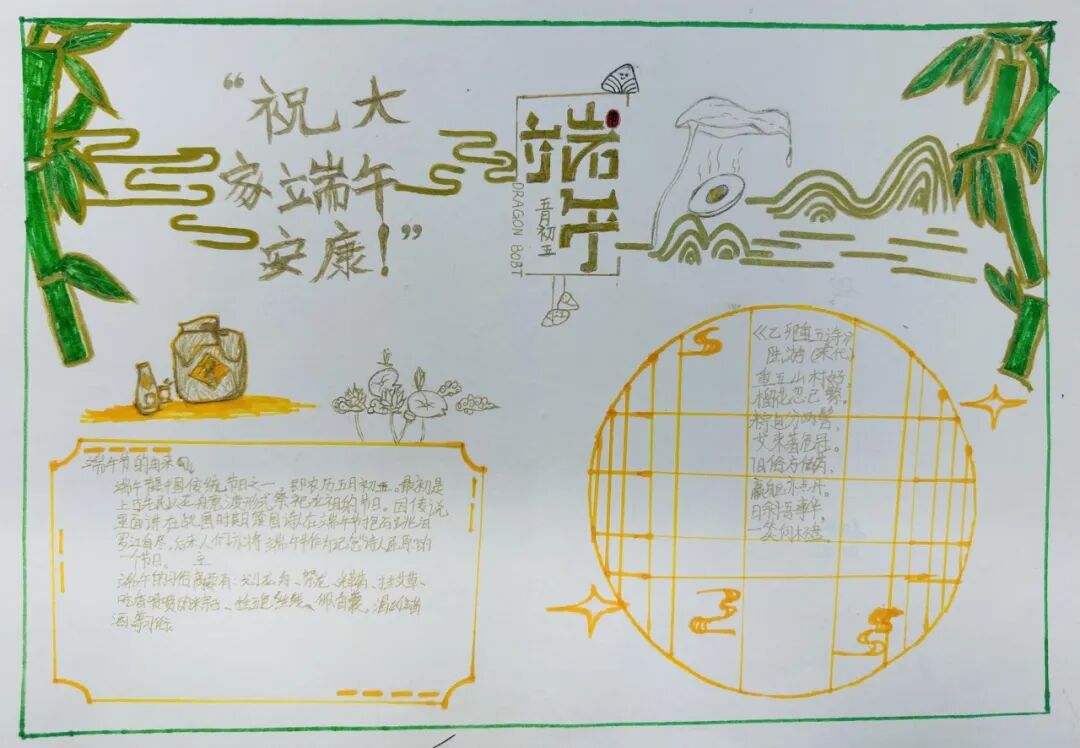 “祝大
家端午
安康！”
端午
五月初五
DRAGON BOBT
端午节的由来
端午是中国传统节日之一，即农历五月初五。最初是
上古先民以龙舟竞渡形式祭祀龙祖的节日。因传说
里面讲在战国时期楚国诗人在端午节抱石跳汨
罗江自尽，后来人们亦将端午节作为纪念诗人屈原的
一个节日。
端午的习俗主要有：划龙舟、祭龙、挂艾草、
吃香喷喷的粽子、拴五色丝线、佩香囊、
酒等习俗。
《乙卯重五诗》
陆游（宋代）
重五山村好，
榴花忽已繁。
粽包分两髻，
艾束著危冠。
旧俗方储药，
羸躯亦点丹。
日斜吾事毕，
一笑向杯盘。